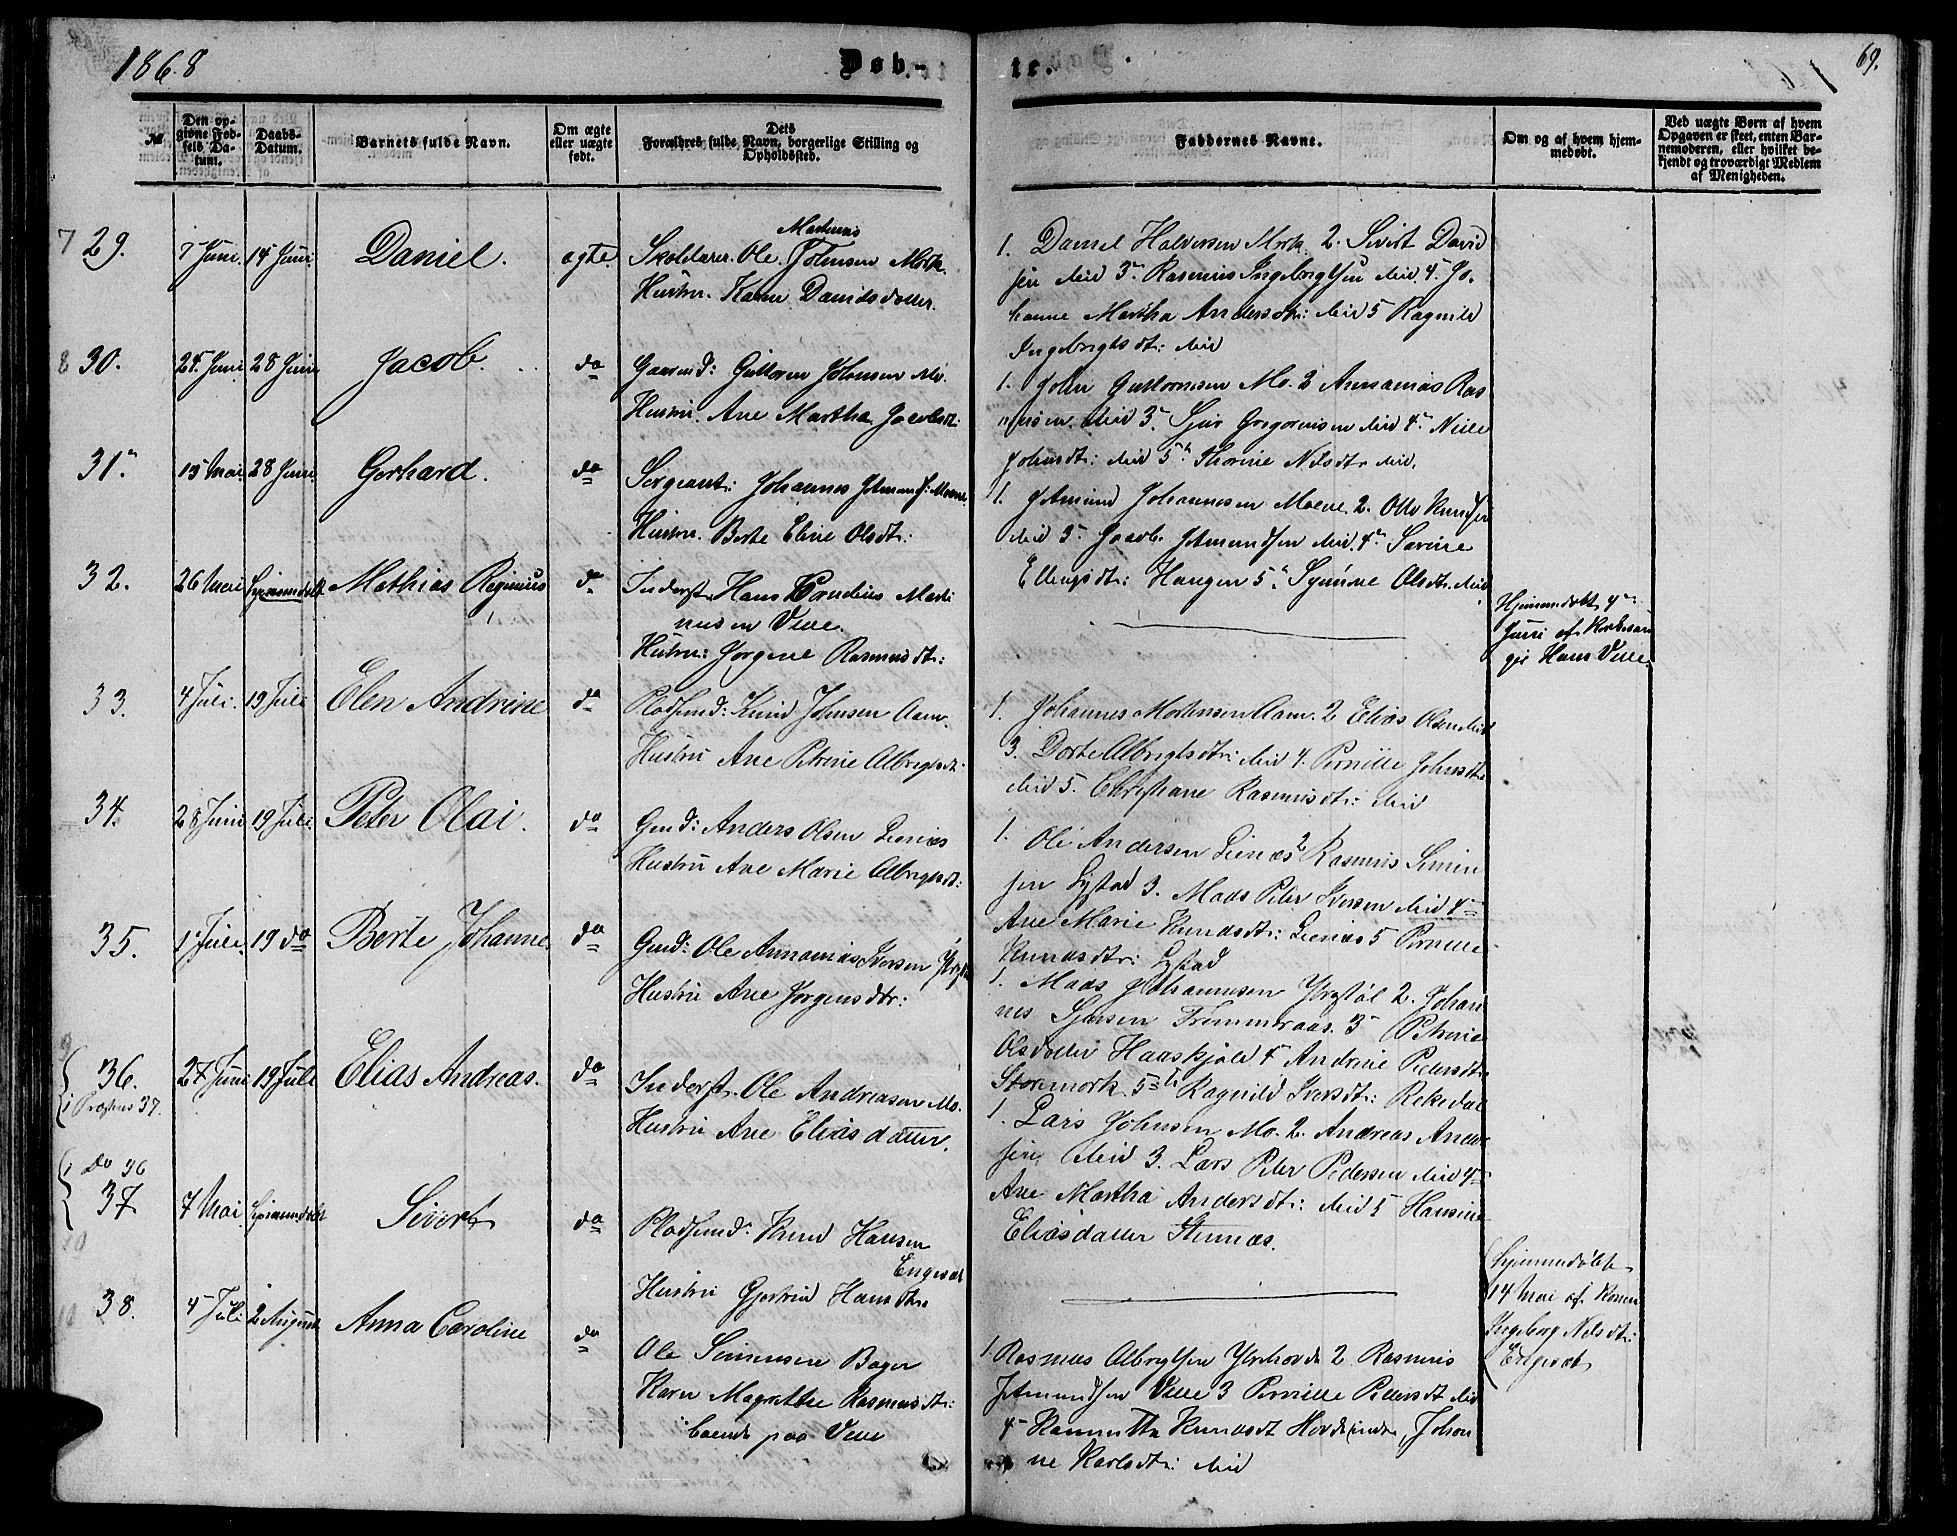 1868
Døb-
te.
69.
№
Den op-
givne Fød-
sels Da-
tum.
Daabs-
Datum.
Barnets fulde Navn.
Om ægte
eller uægte
født.
Dets
Forældres fulde Navn, borgerlige Stilling og
Opholdssted.
Faddernes Navne.
Om og af hvem hjem-
medøbt.
Ved uægte Børn af hvem
Opgaven er skeet, enten Bar-
nemoderen, eller hvilket be-
kjendt og troværdigt Medlem
af Menigheden.
7 29. 7 Juni. 14 Juni. Daniel. ægte.
Martinus
Skolelærer. Ole Johnsen Mork.
Hustru. Karen Davidsdatter.
1. Daniel Halvorsen Mork 2. Sivert David
sen ibid 3. Rasmus Ingebrigtsen ibid 4. Jo-
hanne Martha Andersdtr: ibid 5 Ragnild
Ingebrigtsdtr: ibid
8 30. 24. Juni 28 Juni Jacob. do
Gaarmd: Guttorm Johnsen Mo.
Hustru. Ane Martha Jacobsdt:
1. John Guttormsen Mo. 2 Annanias Ras
musen ibid 3. Sjur Gregoriusen ibid 4.
Johnsdtr: ibid 5 Thorine Nilsdtr ibid.
31. 15 Mai. 28 Juni. Gerhard. do
Sergeant: Johannes
Hustru. Berte Eline Olsdtr:
1. Johannesen Moene. 2. Ole Knudsen
ibid 3. Jacob ibid. 4. Sevrine
Ellingsdtr: Haugen 5. Synnøve Olsdtr. ibid
32. 26 Mai Hjemmedøbt Mathias Reginius do
Inderst Hans Kornelius Marti
nusen Velle.
Hustru: Jørgine Rasmusdtr:
Hjemmedøbt 4
Juni af Kirkesan
ger Hans Velle
33. 4 Juli. 19 Juli Elen Andrine do
Pladsmd: Knud Johnsen Aam.
Hustru Ane Petrine Albrigtsdt:
1. Johannes Mortensen Aam. 2 Elias Olsen ibid
3. Dorte Albrigtsdtr: ibid 4. Pernille Johnsdtr
ibid 5. Christiane Rasmusdtr: ibid
34. 28 Juni 19 Juli. Peter Olai. do
Gmd: Anders Olsen Lienæs
Hustru Ane Marie Albrigtsdt:
1. Ole Andersen Lienæs 2 Rasmus Simen
sen Lystad 3. Mads Peter Iversen ibid 4
Ane Marie Knudsdtr: Lienæs 5 Pernille
Knudsdtr: Lystad
35. 1 Juli. 19 do Berte Johanne. do
Gmd: Ole Annanias Iversen
Hustru Ane Jørgensdtr:
1. Mads Johannesen 2. Johan
nes 3 Petrine
Olsdatter Haaskjold 4 Andrine Pedersdtr
Storemork. 5 Ragnild Iversdtr: Rekedal
9
36. 27 Juni 19 Juli Elias Andreas. do
Præstens 37.
Inderst. Ole Andreasen Mo.
Hustru Ane Eliasdatter.
1. Lars Johnsen Mo. 2. Andreas Ander
sen ibid 3. Lars Peter Pedersen ibid 4
Ane Martha Andersdtr: ibid 5 Hansine
Eliasdatter Stennæs.
Do 36
37. 7 Mai Hjemmedøbt Sivert do
Pladsmd: Knud Hansen
Engeset
Hustru Gjertrud Hansdtr.
Hjemmedøbt
14 Mai af Karen
Ingeborg Nilsdtr:
Engeset
10 38. 4 Juli 2 August Anna Caroline do
Ole Simensen Bager
Karen Magrethe Rasmusdtr:
boende paa Velle
1. Rasmus Albrigtsen 2. Rasmus
Velle 3 Pernille Pedersdt ibid
4 Knudsdt Johan
ne Karlsdtr: ibid